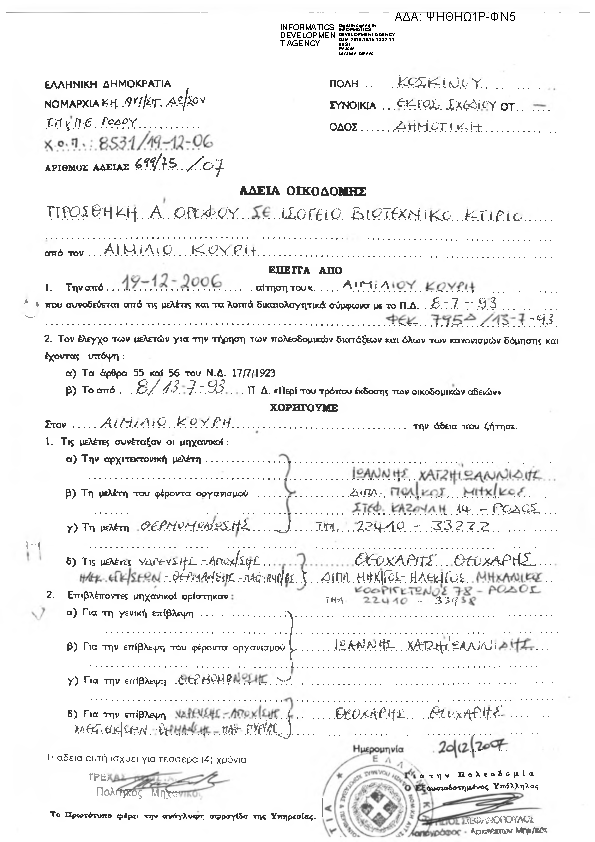 ΑΔΑ: ΨΗΘΗΩ1Ρ-ΦΝ5
INFORMATICS
DEVELOPMEN
T AGENCY
ΕΛΛΗΝΙΚΗ ΔΗΜΟΚΡΑΤΙΑ
ΠΟΛΗ ΚΟΣΚΙΝΟΥ
ΝΟΜΑΡΧΙΑΚΗ
ΣΥΝΟΙΚΙΑ ΕΚΤΟΣ ΣΧΕΔΙΟΥ ΟΤ —
ΡΟΔΟΥ
ΟΔΟΣ ΔΗΜΟΤΙΚΗ
Χ.Ο.Π.: 8531/19-12-06
ΑΡΙΘΜΟΣ ΑΔΕΙΑΣ 699/75/07
ΑΔΕΙΑ ΟΙΚΟΔΟΜΗΣ
ΠΡΟΣΘΗΚΗ Α' ΟΡΟΦΟΥ ΣΕ ΙΣΟΓΕΙΟ ΒΙΟΤΕΧΝΙΚΟ ΚΤΙΡΙΟ
από τον ΑΙΜΙΛΙΟ ΚΟΥΡΗ
ΕΠΕΙΤΑ ΑΠΟ
1. Την από 19-12-2006 αίτηση του κ. ΑΙΜΙΛΙΟΥ ΚΟΥΡΗ
που συνοδεύεται από τις μελέτες και τα λοιπά δικαιολογητικά σύμφωνα με το Π.Δ. 8-7-93
ΦΕΚ 795Δ/13-7-93
2. Τον έλεγχο των μελετών για την τήρηση των πολεοδομικών διατάξεων και όλων των κανονισμών δόμησης και
έχοντας υπόψη :
α) Τα άρθρα 55 και 56 του Ν.Δ. 17/7/1923
β) Το από 8/13-7-93 Π Δ. «Περί του τρόπου έκδοσης των οικοδομικών αδειών»
ΧΟΡΗΓΟΥΜΕ
Στον ΑΙΜΙΛΙΟ ΚΟΥΡΗ την άδεια που ζήτησε.
1. Τις μελέτες συνέταξαν οι μηχανικοί :
α) Την αρχιτεκτονική μελέτη
ΙΩΑΝΝΗΣ ΧΑΤΖΗΙΩΑΝΝΙΔΗΣ
β) Τη μελέτη του φέροντα οργανισμού ΔΙΠΛ ΠΟΛ/ΚΟΣ ΜΗΧ/ΚΟΣ
ΣΤΕΦ. ΚΑΖΟΥΛΗ 14 - ΡΟΔΟΣ
γ) Τη μελέτη ΘΕΡΜΟΜΟΝΩΣΗΣ ΤΗΛ 22410 - 33222
δ) Τις μελέτες ΥΔΡΕΥΣΗΣ - ΑΠΟΧ/ΣΗΣ ΘΕΟΧΑΡΗΣ ΘΕΟΧΑΡΗΣ
ΔΙΠΛ ΜΗΧ/ΓΟΣ-ΗΛΕΚ/ΓΟΣ ΜΗΧΑΝΙΚΟΣ
78 - ΡΟΔΟΣ
2. Επιβλέποντες μηχανικοί ορίστηκαν : ΤΗΛ 22410 - 33938
α) Για τη γενική επίβλεψη
β) Για την επίβλεψη του φέροντα οργανισμού ΙΩΑΝΝΗΣ ΧΑΤΖΗΙΩΑΝΝΙΔΗΣ
γ) Για την επίβλεψη ΘΕΡΜΟΜΟΝΩΣΗΣ
δ) Για την επίβλεψη ΥΔΡΕΥΣΗΣ - ΑΠΟΧ/ΣΗΣ ΘΕΟΧΑΡΗΣ ΘΕΟΧΑΡΗΣ
Ημερομηνία 20/12/2007
Η άδεια αυτή ισχύει για τέσσερα (4) χρόνια
Για την Πολεοδομία
Ο Εξουσιοδοτημένος Υπάλληλος
Πολιτικός Μηχανικός
Το Πρωτότυπο φέρει την ανάγλυφη σφραγίδα της Υπηρεσίας.